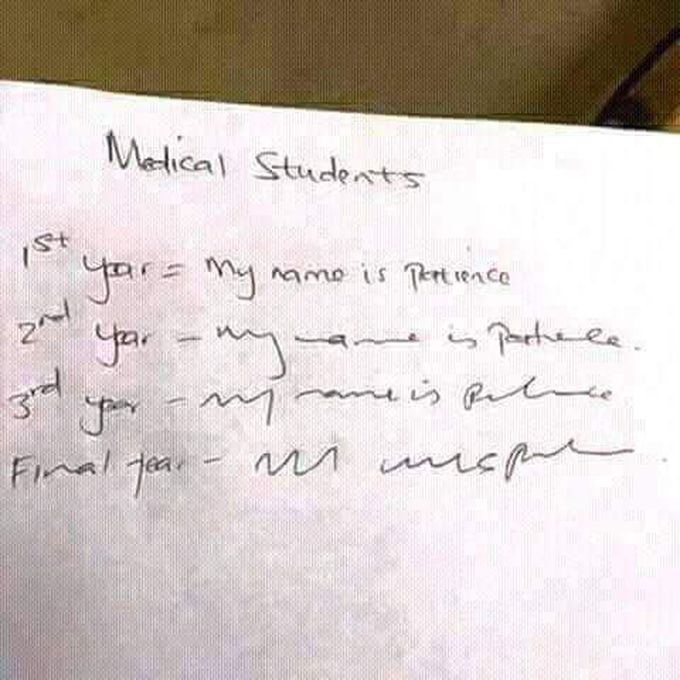 Medical Students
1st year = My name is Patience
2nd year - my name is Patience.
3rd year - my name is
Final year -